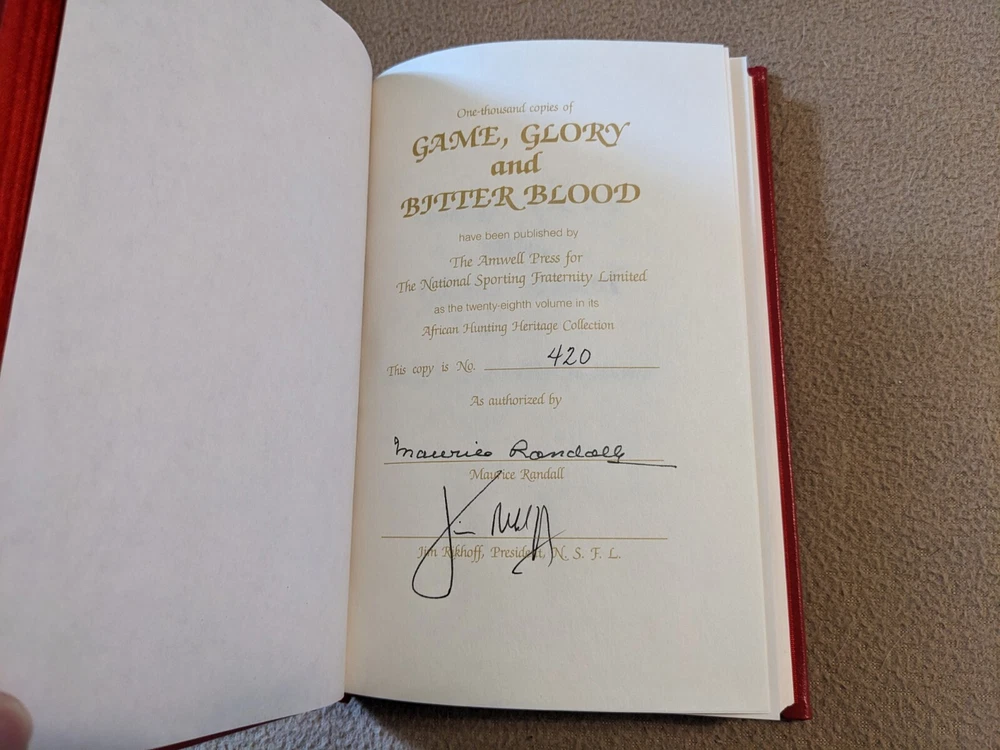 One-thousand copies of
GAME, GLORY
and
BITTER BLOOD
have been published by
The Amwell Press for
The National Sporting Fraternity Limited
as the twenty-eighth volume in its
African Hunting Heritage Collection
This copy is No. 420
As authorized by
Maurice Randall
Maurice Randall
Jim Rikhoff
Jim Rikhoff, President, N. S. F. L.